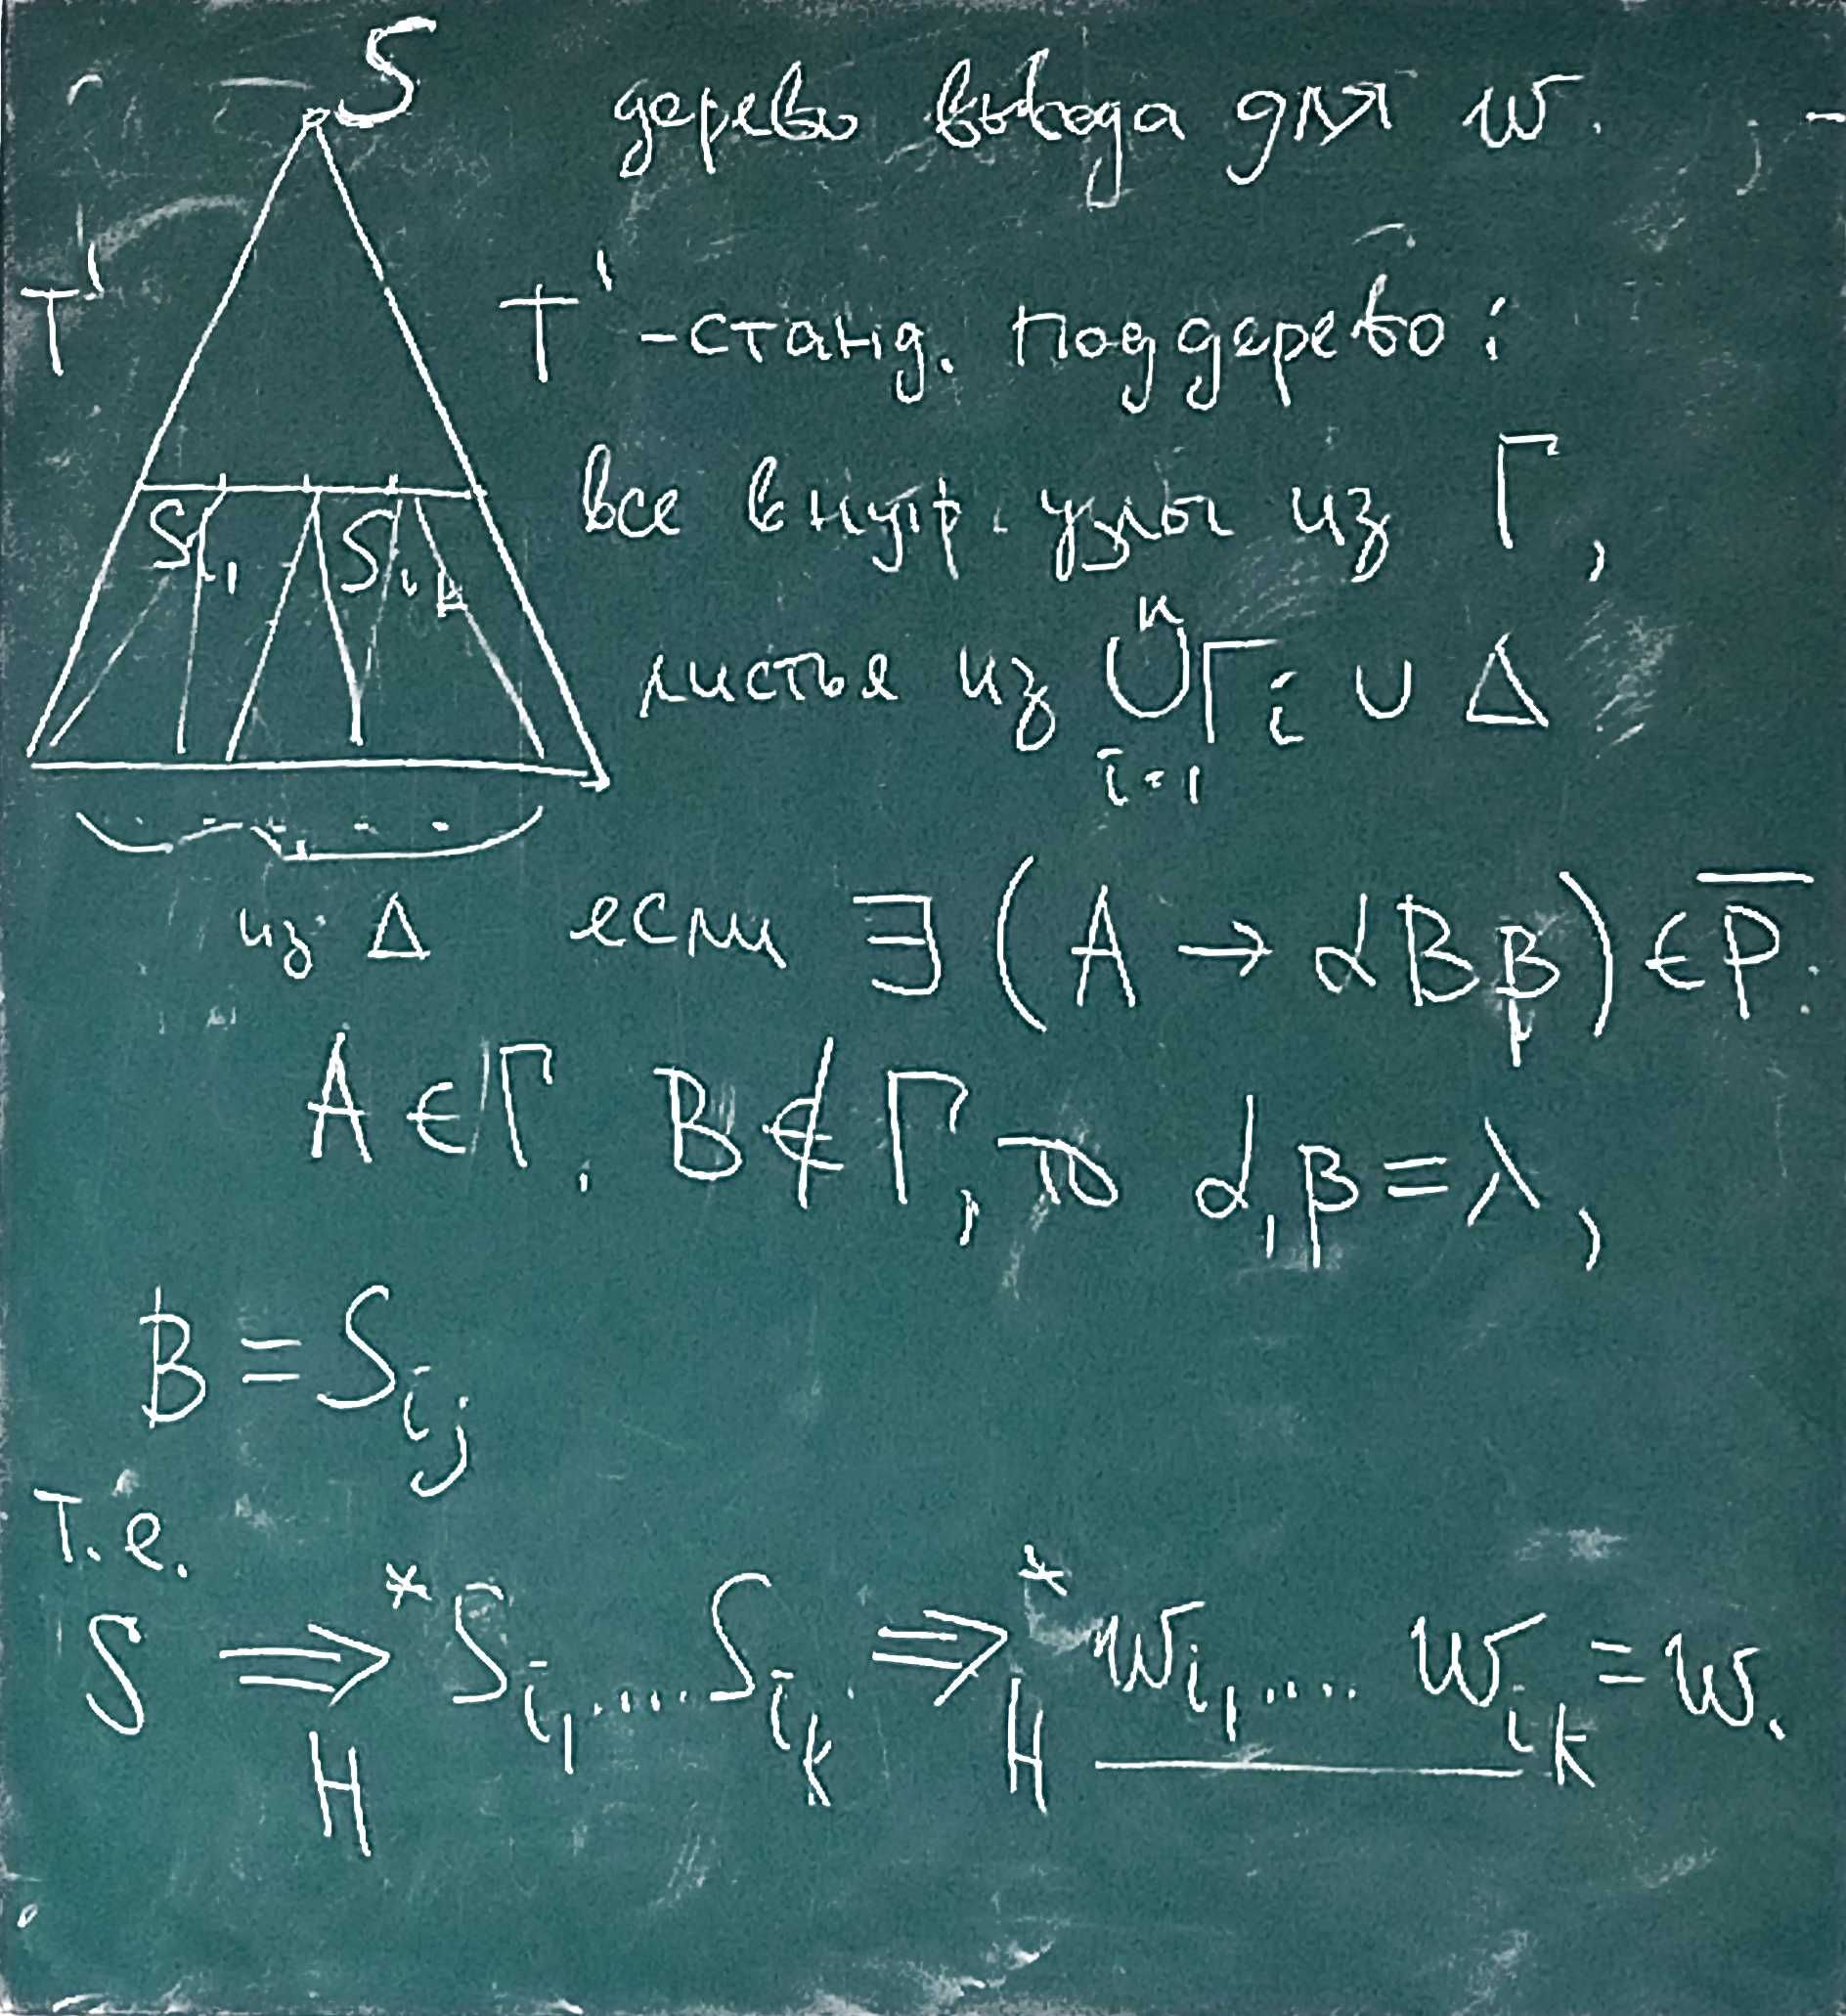 S дерево вывода для w.
T' T' - станд. поддерево:
S_{i_1} S_{i_k} все внутр. узлы из Γ,
листья из ⋃_{i=1}^{n} Γ_i ∪ Δ
из Δ если ∃ (A → αBβ) ∈ \overline{P}.
A ∈ Γ, B ∉ Γ, то α, β = λ,
B = S_{i_j}
т.е.
S ⇒*_H S_{i_1} .... S_{i_k} ⇒*_H w_{i_1} .... w_{i_k} = w.